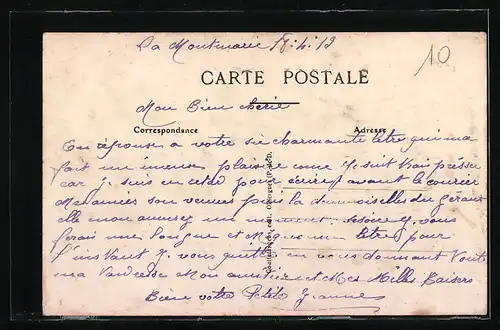 La Montmarie 17.4.13
10
CARTE POSTALE
Mon Bien cherie
Correspondance
Adresse
En réponse a votre si charmante letre qui ma
fait un imense plaisire come je suit pressée
car je suis en retard pour écrire avant le courier
son venues pour la demoiselles du gérant
elle mon amusez un moment. vous
ferai une longue et letre pour
l'instant je vous quitte en vous donnant toute
ma tendresse Mon amitier et Mes Milles Baisers
Bien votre Petite Jeanne